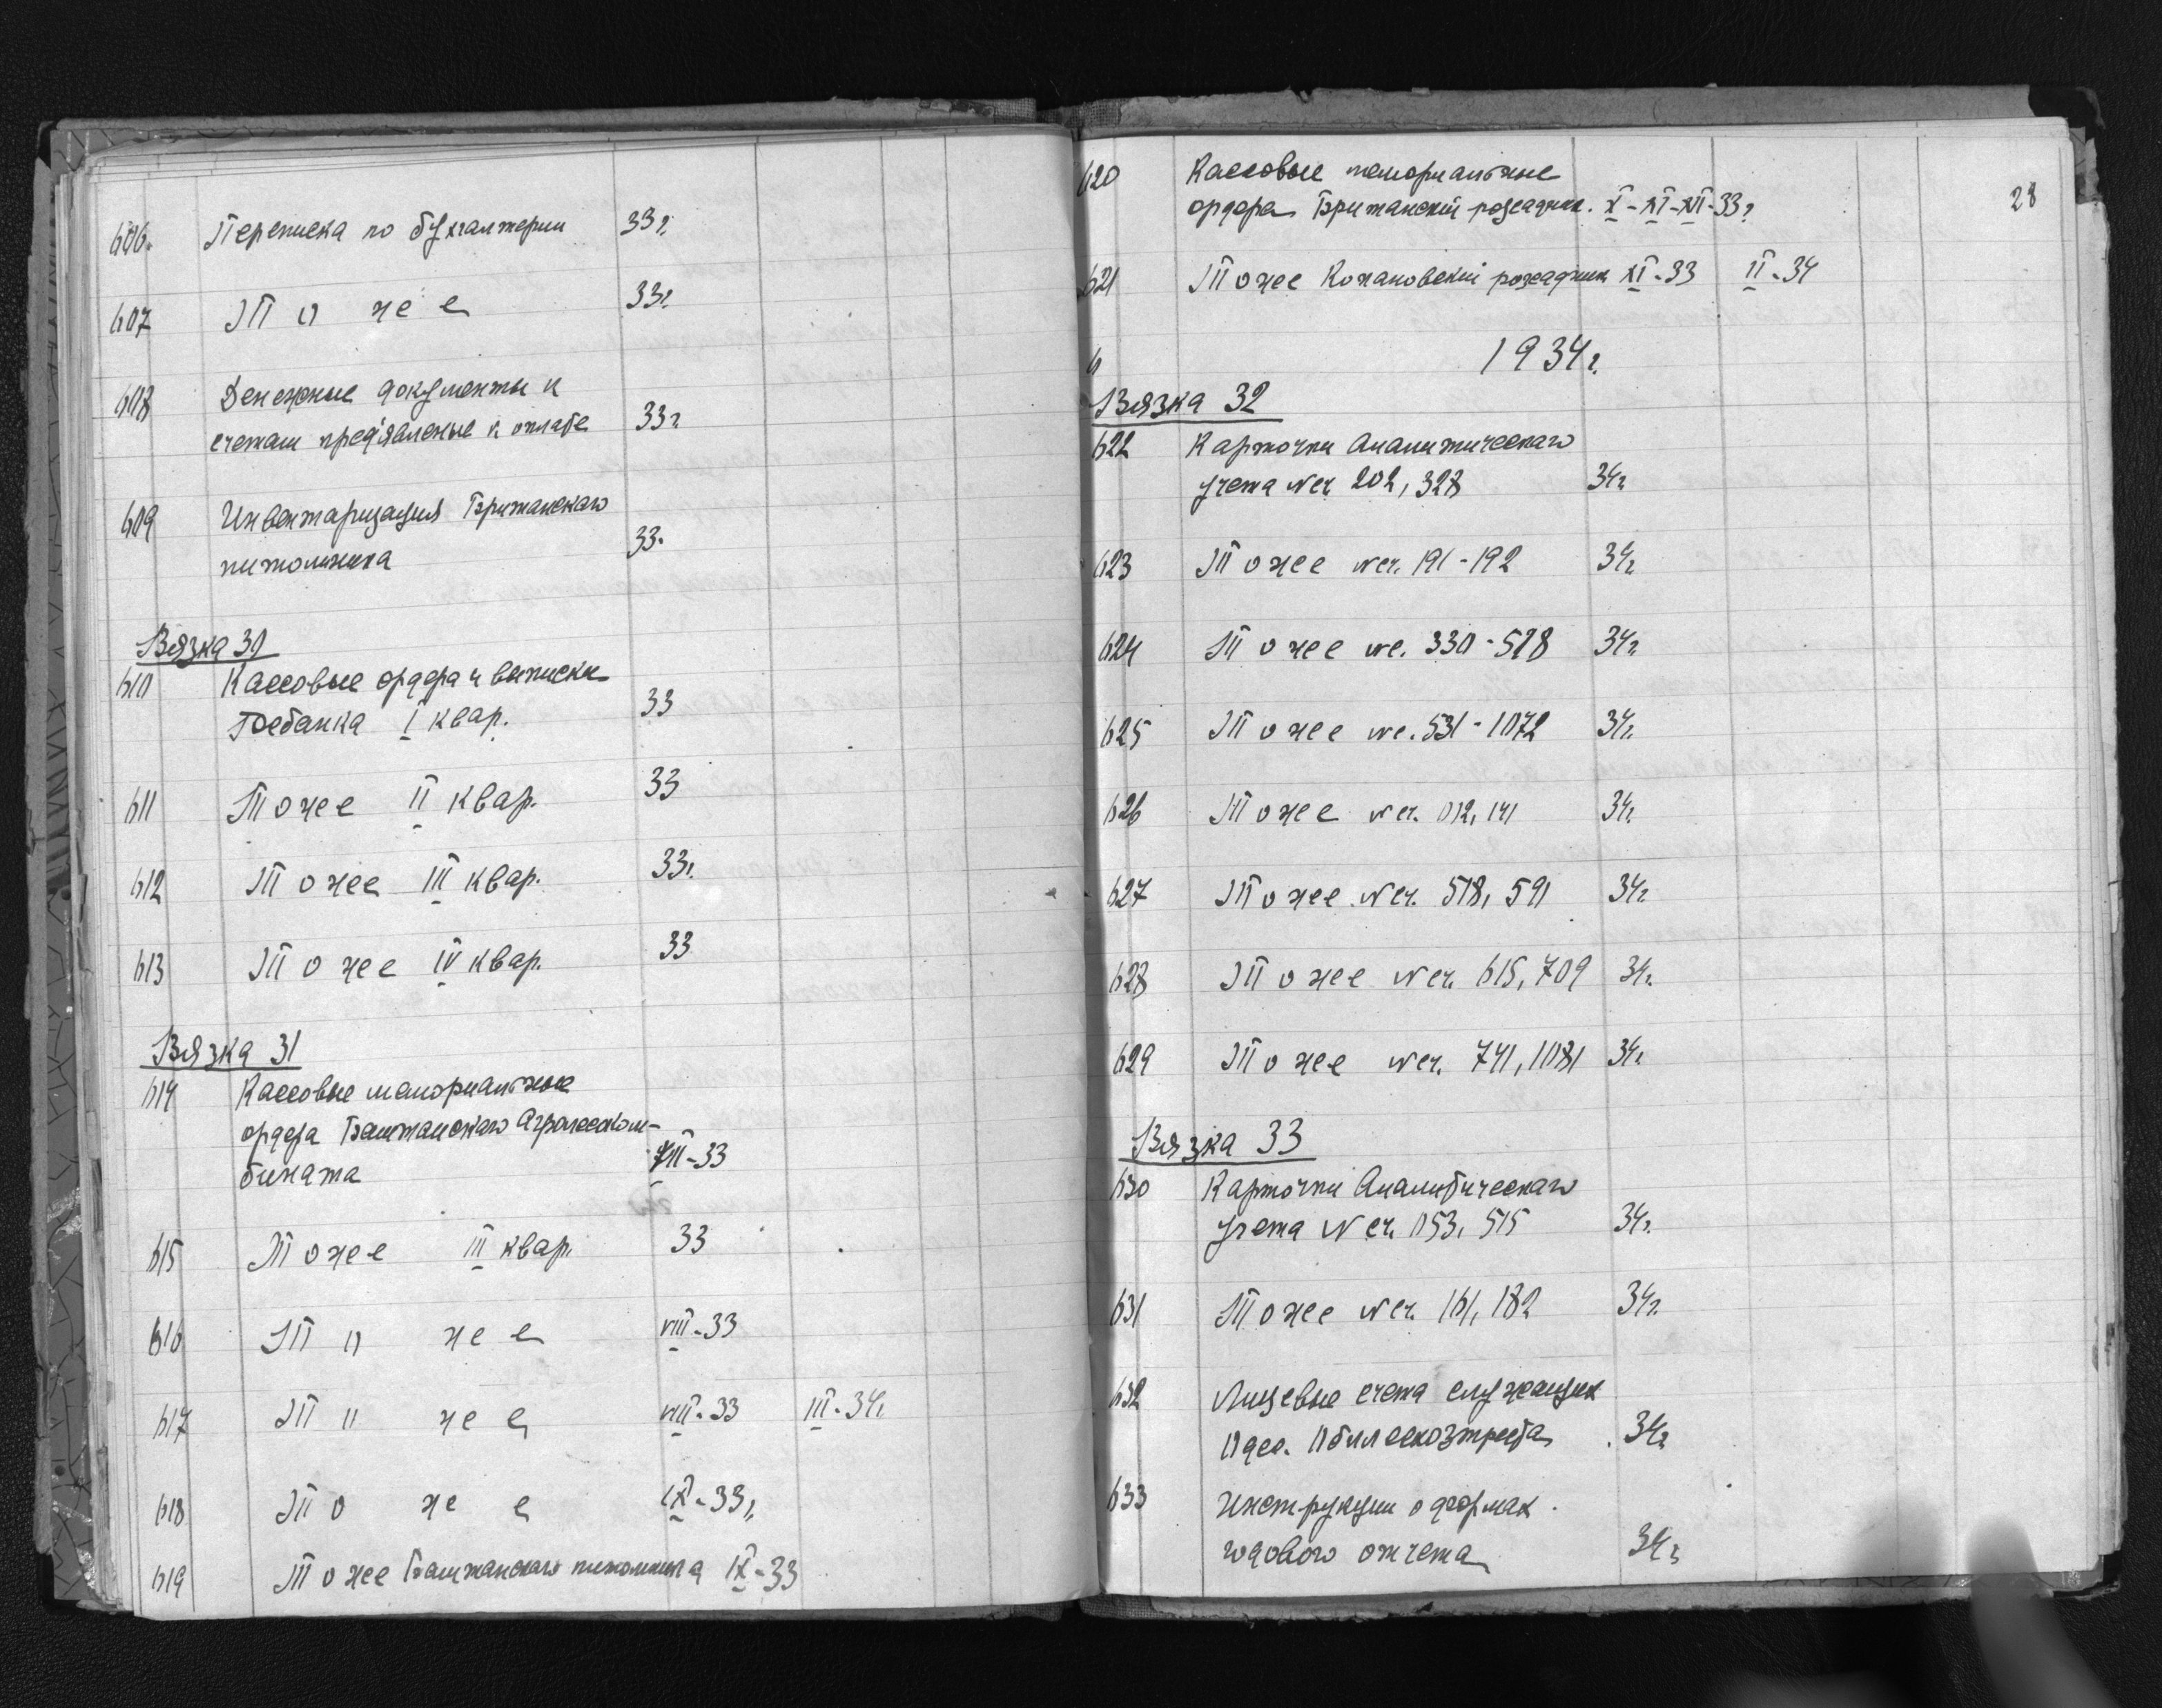 606. Переписка по бухгалтерии 33г.
607 То же 33г.
608 Денежные документы к
счетам пред'явленые к оплате 33г
609 Инвентаризация Британскаго
питомника 33.
Вязка 30
610 Кассовые ордера и выписки
Госбанка I квар. 33
611 Тоже II квар. 33
612 Тоже III квар. 33г.
613 Тоже IV квар. 33
Вязка 31
614 Кассовые мемориальные
ордера Баштанскаго Агролесхоза-
бината VII-33
615 Тоже III квар. 33
616 То же VIII-33
617 То же VIII-33 III-34г.
618 То же IX-33г.
619 Тоже Баштанскаго питомника IX-33
28
620 Кассовые мемориальные
ордера Британский розсадник. X-XI-XII-33г
621 Тоже розсадник XI-33 II-34
1934г.
Вязка 32
622 Карточки Аналитическаго
учета № сч. 202, 328 34г
623 Тоже № сч. 191-192 34г
624 Тоже № с. 330-528 34г
625 Тоже № с. 531-1072 34г.
626 Тоже № сч. 012, 141 34г.
627 Тоже № сч. 518, 591 34г.
628 Тоже № сч. 615, 709 34г.
629 Тоже № сч. 741, 1081 34г.
Вязка 33
630 Карточки Аналитическаго
учета № сч. 053, 515 34г.
631 Тоже № сч. 161, 182 34г.
632 Лицевые счета служащих
Одес. Обллесхозтреста 34г
633 Инструкции о формах
годового отчета 34г